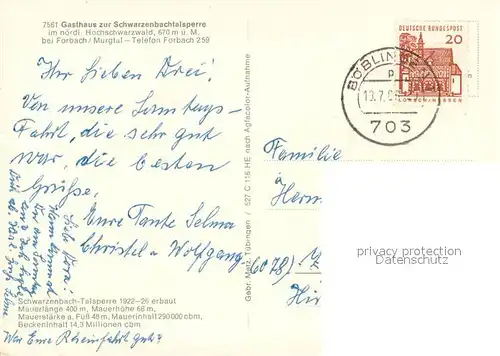 7561 Gasthaus zur Schwarzenbachtalsperre
im nördl. Hochschwarzwald, 670 m ü. M.
bei Forbach / Murgtal – Telefon Forbach 259
Ihr lieben Drei!
Von unsere Samtags-
Fahrt, die sehr gut
war, die besten
Grüße,
Eure Tante Selma
Christel u Wolfgang
Schwarzenbach-Talsperre 1922-26 erbaut
Mauerlänge 400 m, Mauerhöhe 66 m,
Mauerstärke a. Fuß 48 m, Mauerinhalt 290 000 cbm,
Beckeninhalt 14,3 Millionen cbm
War Eure Rheinfahrt gut?
Gebr. Metz, Tübingen / 527 C 116 HE nach Agfacolor-Aufnahme
DEUTSCHE BUNDESPOST
20
LORSCH/HESSEN
BÖBLINGEN
p
13.7.
703
Familie
Herm
(6078)
privacy protection
Datenschutz